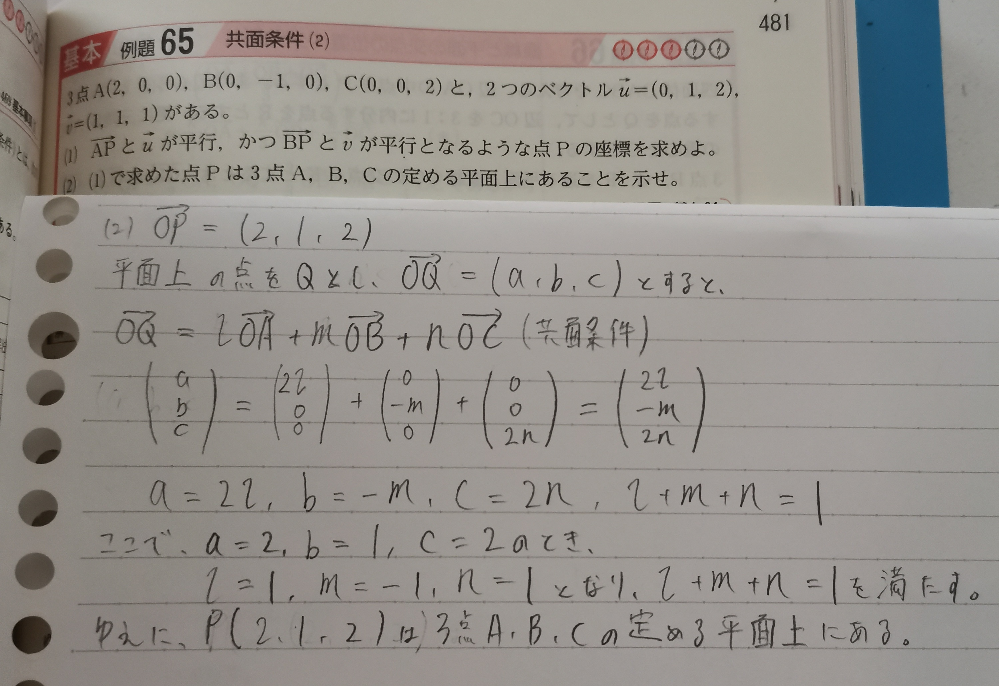 481
基本 例題 65 共面条件 (2)
3点A(2, 0, 0), B(0, −1, 0), C(0, 0, 2) と, 2つのベクトル u→=(0, 1, 2),
v→=(1, 1, 1) がある。
(1) AP→ と u→ が平行, かつ BP→ と v→ が平行となるような点Pの座標を求めよ。
(2) (1)で求めた点Pは3点A, B, Cの定める平面上にあることを示せ。
(2) OP→ = (2, 1, 2)
平面上の点をQとし、OQ→ = (a, b, c) とすると、
OQ→ = lOA→ + mOB→ + nOC→ (共面条件)
(a b c) = (2l 0 0) + (0 −m 0) + (0 0 2n) = (2l −m 2n)
a = 2l, b = −m, c = 2n, l + m + n = 1
ここで、a = 2, b = 1, c = 2のとき、
l = 1, m = −1, n = 1 となり、l + m + n = 1 を満たす。
ゆえに、P(2, 1, 2)は3点A, B, Cの定める平面上にある。